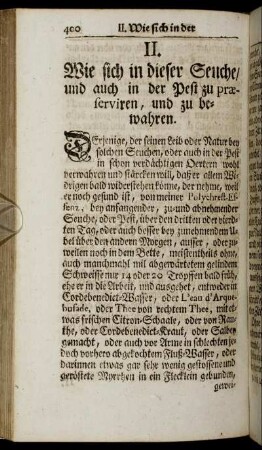 400 II. Wie sich in der
II.
Wie sich in dieser Seuche/
und auch in der Pest zu præ-
serviren, und zu be-
wahren.
DErjenige, der seinen Leib oder Natur bey
solchen Seuchen, oder auch in der Pest
in schon verdächtigen Oertern wohl
verwahren und stärcken will, daß er allem Wi-
drigen bald widerstehen könne, der nehme, weil
er noch gesund ist, von meiner Polychrest-Es-
senz, bey anfangender, zu- und abnehmender
Seuche, oder Pest, über den dritten oder vierd-
ten Tag, oder auch besser bey zunehmendem U-
bel über den andern Morgen, ausser, oder zu-
weilen noch in dem Bette, meistentheils ohne,
auch manchmahl mit abgewärtetem gelindem
Schweisse nur 14 oder 20 Tropffen bald früh,
ehe er in die Arbeit, und ausgehet, entweder in
Cordebenedict-Wasser, oder L'eau d'Arque-
busade, oder Thee von rechtem Thee, mit et-
was frischen Citron-Schaale, oder von Rau-
the, oder Cordebenedict-Kraut, oder Salbey
gemacht, oder auch vor Arme in schlechten je-
doch vorhero abgekochtem Fluß-Wasser, oder
darinnen etwas gar sehr wenig gestossene und
geröstete Myrrhen in ein Flecklein gebunden,
gewei-